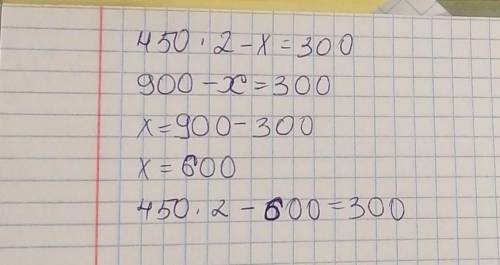 450 · 2 - x = 300
900 - x = 300
x = 900 - 300
x = 600
450 · 2 - 600 = 300